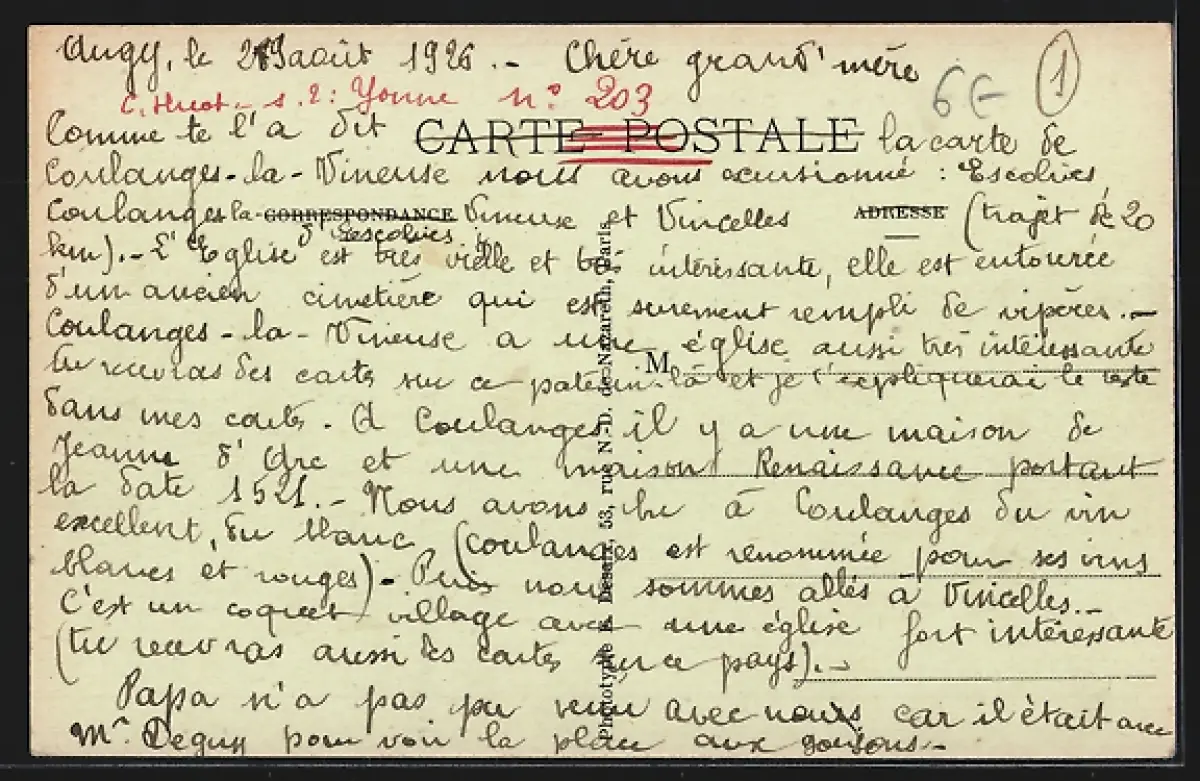 Augy, le 29 août 1926.- Chère grand'mère
6€ 1
C. Huot - s. 2: Yonne n° 203
Comme te l'a dit CARTE POSTALE la carte de
Coulanges-la-Vineuse nous avons excursionné : Escolives,
Coulanges la- CORRESPONDANCE Vineuse et Vincelles ADRESSE (trajet de 20
km).- L'Eglise d'Escolives est très vielle et très intéressante, elle est entourée
d'un ancien cimetière qui est surement rempli de vipères.-
Coulanges-la-Vineuse a une église aussi très intéressante
M
tu recevras des cartes sur ce patelin-là et je t'expliquerai le reste
dans mes cartes. A Coulanges il y a une maison de
Jeanne d'Arc et une maison Renaissance portant
la date 1521.- Nous avons bu à Coulanges du vin
excellent, du blanc (Coulanges est renommée pour ses vins
blancs et rouges)- Puis nous sommes allés à Vincelles.-
C'est un coquet village avec une église fort intéressante
(tu recevras aussi des cartes sur ce pays).-
Papa n'a pas pu venir avec nous, car il était avec
Mr. Deguy pour voir la place aux goujons.-
Phototypie Desaix, 53, rue N.-D. de Nazareth, Paris